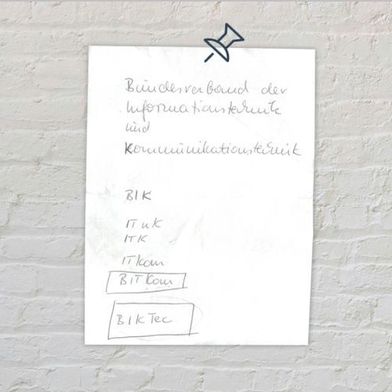 Bundesverband der
Informationstechnik
und
Kommunikationstechnik
BIK
IT uK
ITK
ITKom
BITKom
BIKTec